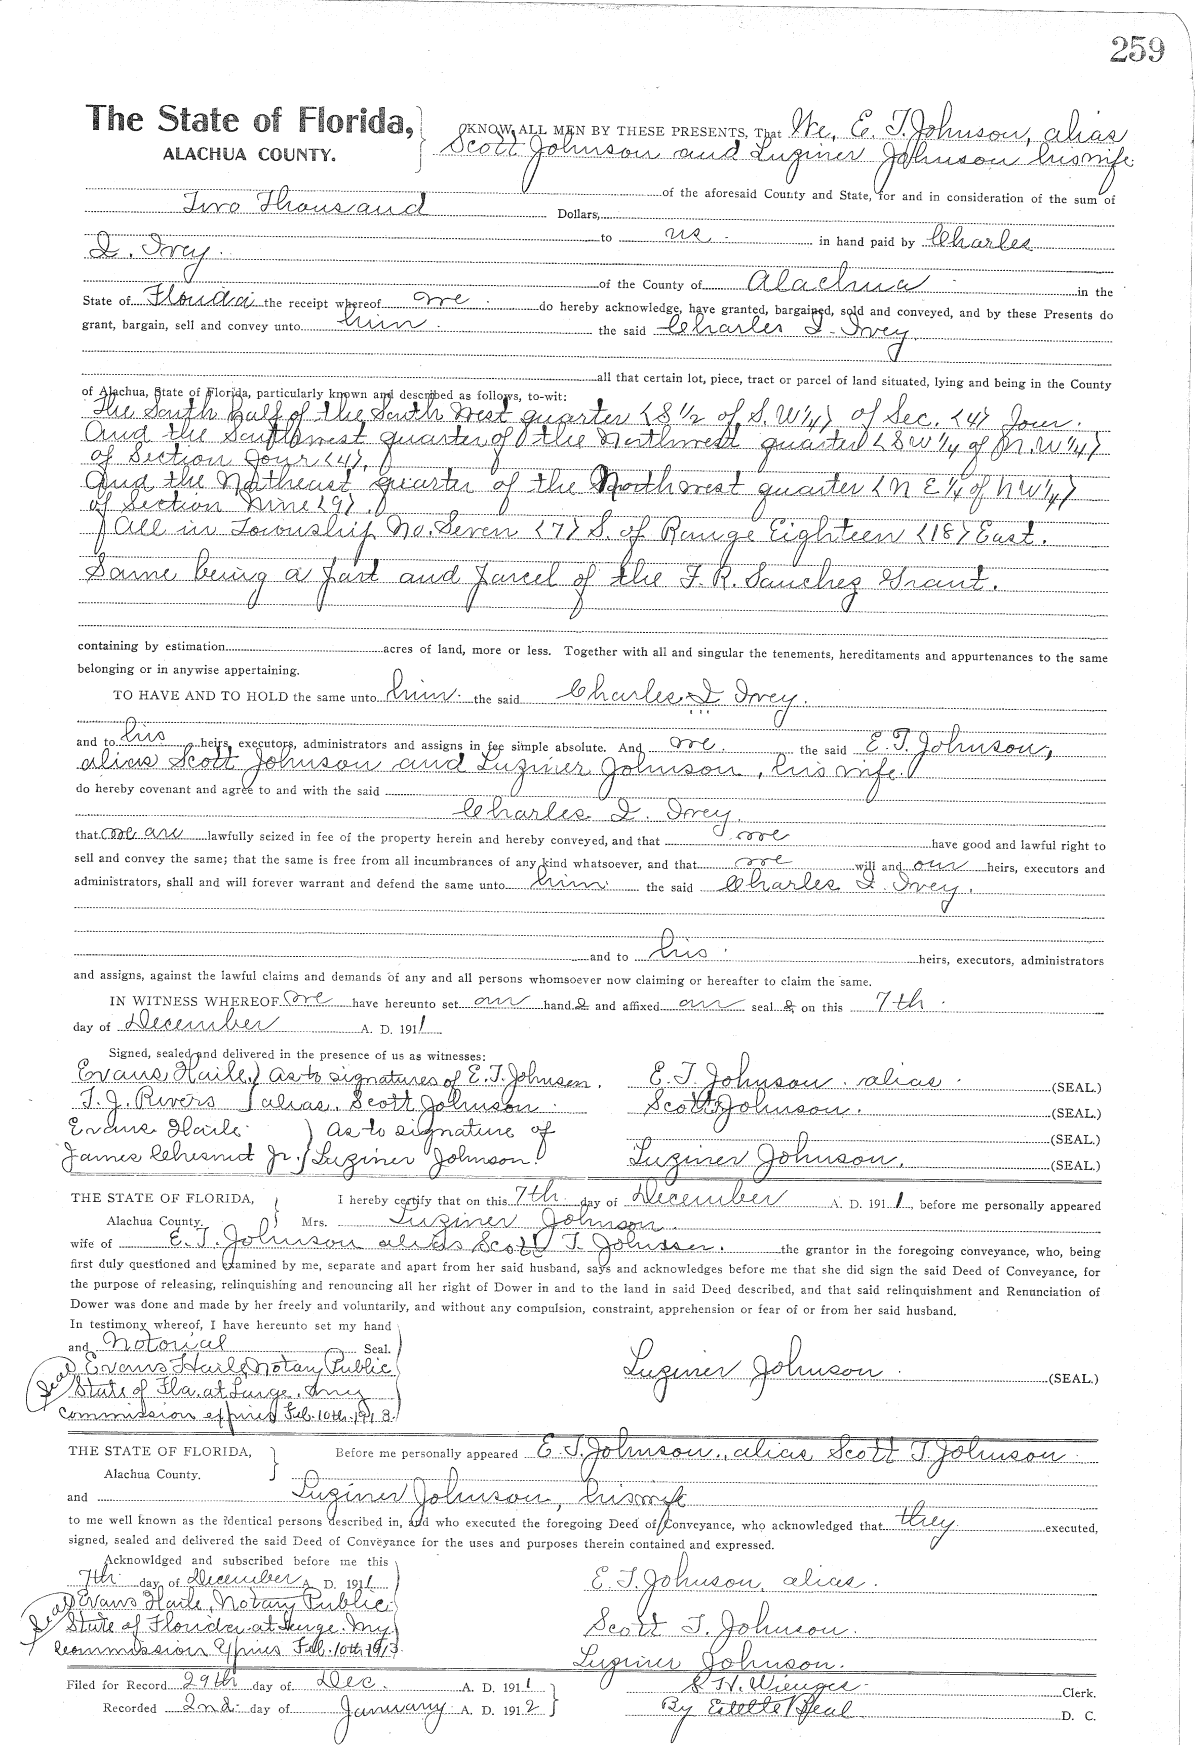 259
The State of Florida,
ALACHUA COUNTY.
KNOW ALL MEN BY THESE PRESENTS, That We, E. T. Johnson, alias
Scott Johnson and Luziner Johnson his wife
of the aforesaid County and State, for and in consideration of the sum of
Two Thousand Dollars,
to us in hand paid by Charles
I. Ivey.
of the County of Alachua in the
State of Florida the receipt whereof we do hereby acknowledge, have granted, bargained, sold and conveyed, and by these Presents do
grant, bargain, sell and convey unto him the said Charles I. Ivey
all that certain lot, piece, tract or parcel of land situated, lying and being in the County
of Alachua, State of Florida, particularly known and described as follows, to-wit:
The South half of the South West quarter (S 1/2 of S. W 1/4) of Sec. (4) Four.
And the Southwest quarter of the Northwest quarter (S W 1/4 of N. W 1/4)
of Section Four (4).
And the Northeast quarter of the Northwest quarter (N E 1/4 of N W 1/4)
of Section Nine (9).
All in Township No. Seven (7) S. of Range Eighteen (18) East.
Same being a part and parcel of the F. R. Sanchez Grant.
containing by estimation acres of land, more or less. Together with all and singular the tenements, hereditaments and appurtenances to the same
belonging or in anywise appertaining.
TO HAVE AND TO HOLD the same unto him the said Charles I Ivey.
and to his heirs, executors, administrators and assigns in fee simple absolute. And we the said E. T. Johnson,
alias Scott Johnson and Luziner Johnson, his wife.
do hereby covenant and agree to and with the said
Charles I. Ivey.
that we are lawfully seized in fee of the property herein and hereby conveyed, and that we have good and lawful right to
sell and convey the same; that the same is free from all incumbrances of any kind whatsoever, and that we will and our heirs, executors and
administrators, shall and will forever warrant and defend the same unto him the said Charles I. Ivey.
and to his heirs, executors, administrators
and assigns, against the lawful claims and demands of any and all persons whomsoever now claiming or hereafter to claim the same.
IN WITNESS WHEREOF we have hereunto set our hand s and affixed our seal s on this 7th
day of December A. D. 1911
Signed, sealed and delivered in the presence of us as witnesses:
Evans Haile, } As to signatures of E. T. Johnson. E. T. Johnson. alias. (SEAL.)
T. J. Rivers } alias. Scott Johnson. Scott Johnson. (SEAL.)
Evans Haile } As to signature of (SEAL.)
James Chesnut Jr. } Luziner Johnson. Luziner Johnson. (SEAL.)
THE STATE OF FLORIDA, I hereby certify that on this 7th day of December A. D. 1911, before me personally appeared
Alachua County. Mrs. Luziner Johnson.
wife of E. T. Johnson alias Scott T. Johnson. the grantor in the foregoing conveyance, who, being
first duly questioned and examined by me, separate and apart from her said husband, says and acknowledges before me that she did sign the said Deed of Conveyance, for
the purpose of releasing, relinquishing and renouncing all her right of Dower in and to the land in said Deed described, and that said relinquishment and Renunciation of
Dower was done and made by her freely and voluntarily, and without any compulsion, constraint, apprehension or fear of or from her said husband.
In testimony whereof, I have hereunto set my hand
and Notorial Seal.
Seal Evans Haile, Notary Public Luziner Johnson. (SEAL.)
State of Fla. at Large. My
commission expires Feb. 10th. 1913.
THE STATE OF FLORIDA, Before me personally appeared E. T. Johnson., alias, Scott T. Johnson
Alachua County.
and Luziner Johnson, his wife
to me well known as the identical persons described in, and who executed the foregoing Deed of Conveyance, who acknowledged that they executed,
signed, sealed and delivered the said Deed of Conveyance for the uses and purposes therein contained and expressed.
Acknowldged and subscribed before me this
7th day of December A. D. 1911 E. T. Johnson, alias.
Seal Evans Haile, Notary Public
State of Florida at Large. My Scott T. Johnson.
commission Expires Feb. 10th, 1913. Luziner Johnson.
Filed for Record 29th day of Dec. A. D. 1911 S. H. Wienges Clerk.
Recorded 2nd day of January A. D. 1912 By Estelle Beal D. C.